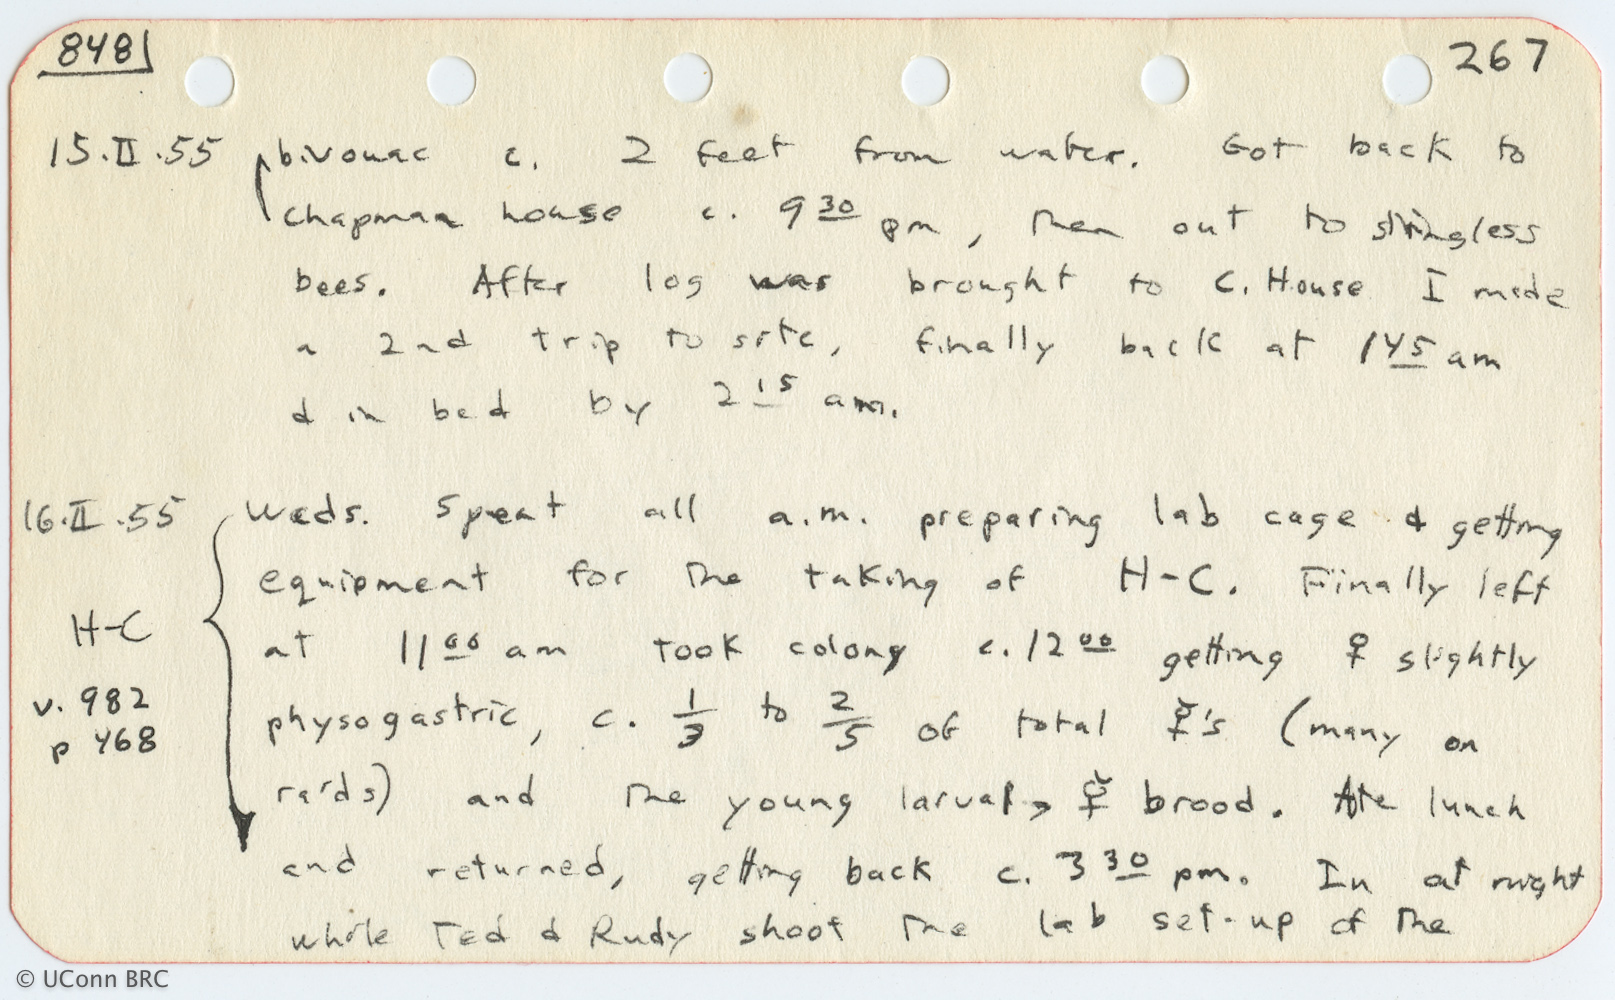 848 267
15.II.55 bivouac c. 2 feet from water. Got back to
chapman house c. 9 30 pm, then out to stingless
bees. After log was brought to C. House I made
a 2nd trip to site, finally back at 1 45 am
& in bed by 2 15 am.
16.II.55 Weds. Spent all a.m. preparing lab cage & getting
equipment for the taking of H-C. Finally left
at 11 00 am took colony c. 12 00 getting ♀ slightly
H-C
physogastric, c. 1/3 to 2/5 of total ☿'s (many on
v. 982
p 468
raids) and the young larval, ☿ brood. Ate lunch
and returned, getting back c. 3 30 pm. In at night
while Ted & Rudy shoot the lab set-up of the
© UConn BRC